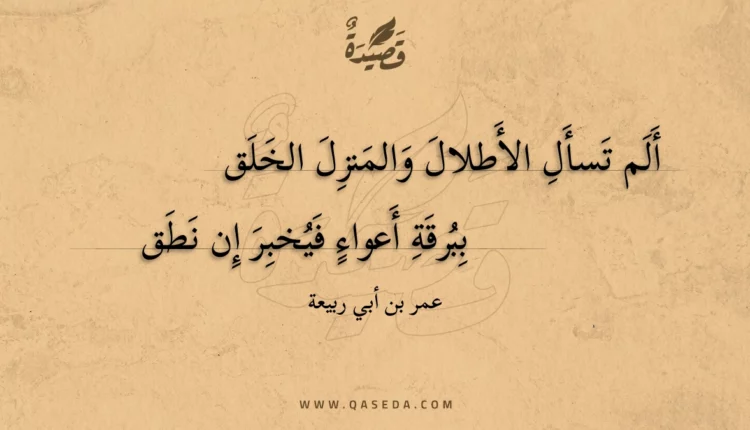 قَصِيدَةٌ
أَلَم تَسأَلِ الأَطلالَ وَالمَنزِلَ الخَلَق
بِبُرقَةِ أَعواءٍ فَيُخبِرَ إِن نَطَق
عمر بن أبي ربيعة
WWW.QASEDA.COM